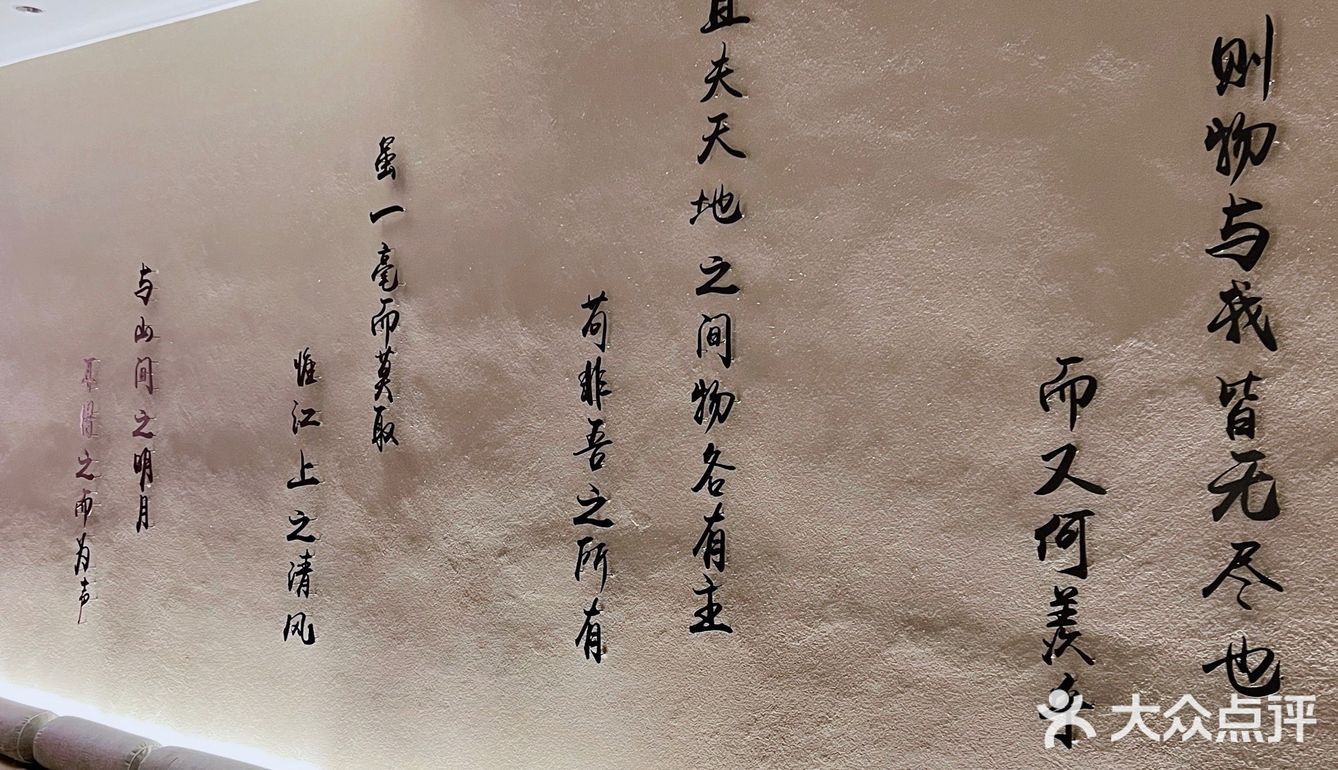 则物与我皆无尽也
而又何羡乎
且夫天地之间物各有主
苟非吾之所有
虽一毫而莫取
惟江上之清风
与山间之明月
耳得之而为声
大众点评